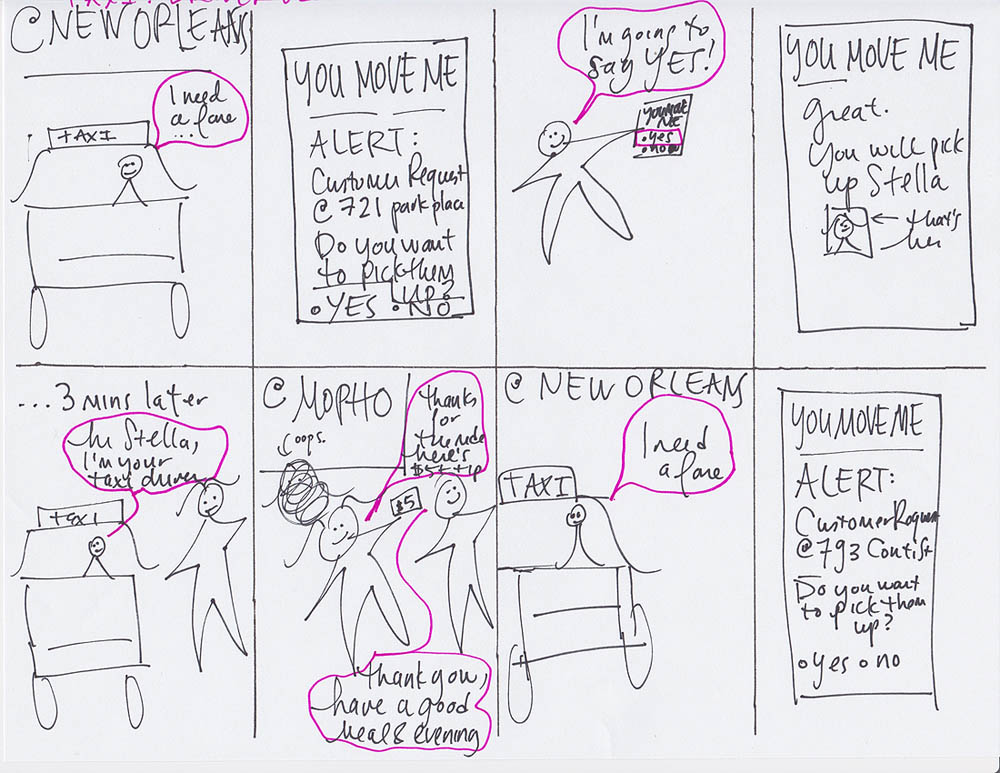 @NEW ORLEANS
I need
a fare
...
TAXI
YOU MOVE ME
ALERT:
Customer Request
@ 721 park place
Do you want
to pick them
up?
YES NO
I'm going to
say YES!
YOU MOVE
ME
yes
no
YOU MOVE ME
great.
You will pick
up Stella
that's
her
...3 mins later
hi Stella,
I'm your
taxi driver
taxi
@ MOPHO
oops.
thanks
for
the ride
here's
$5 + tip
$5
thank you,
have a good
meal & evening
@ NEW ORLEANS
I need
a fare
TAXI
YOU MOVE ME
ALERT:
Customer Request
@ 793 Conti st
Do you want
to pick them
up?
yes no